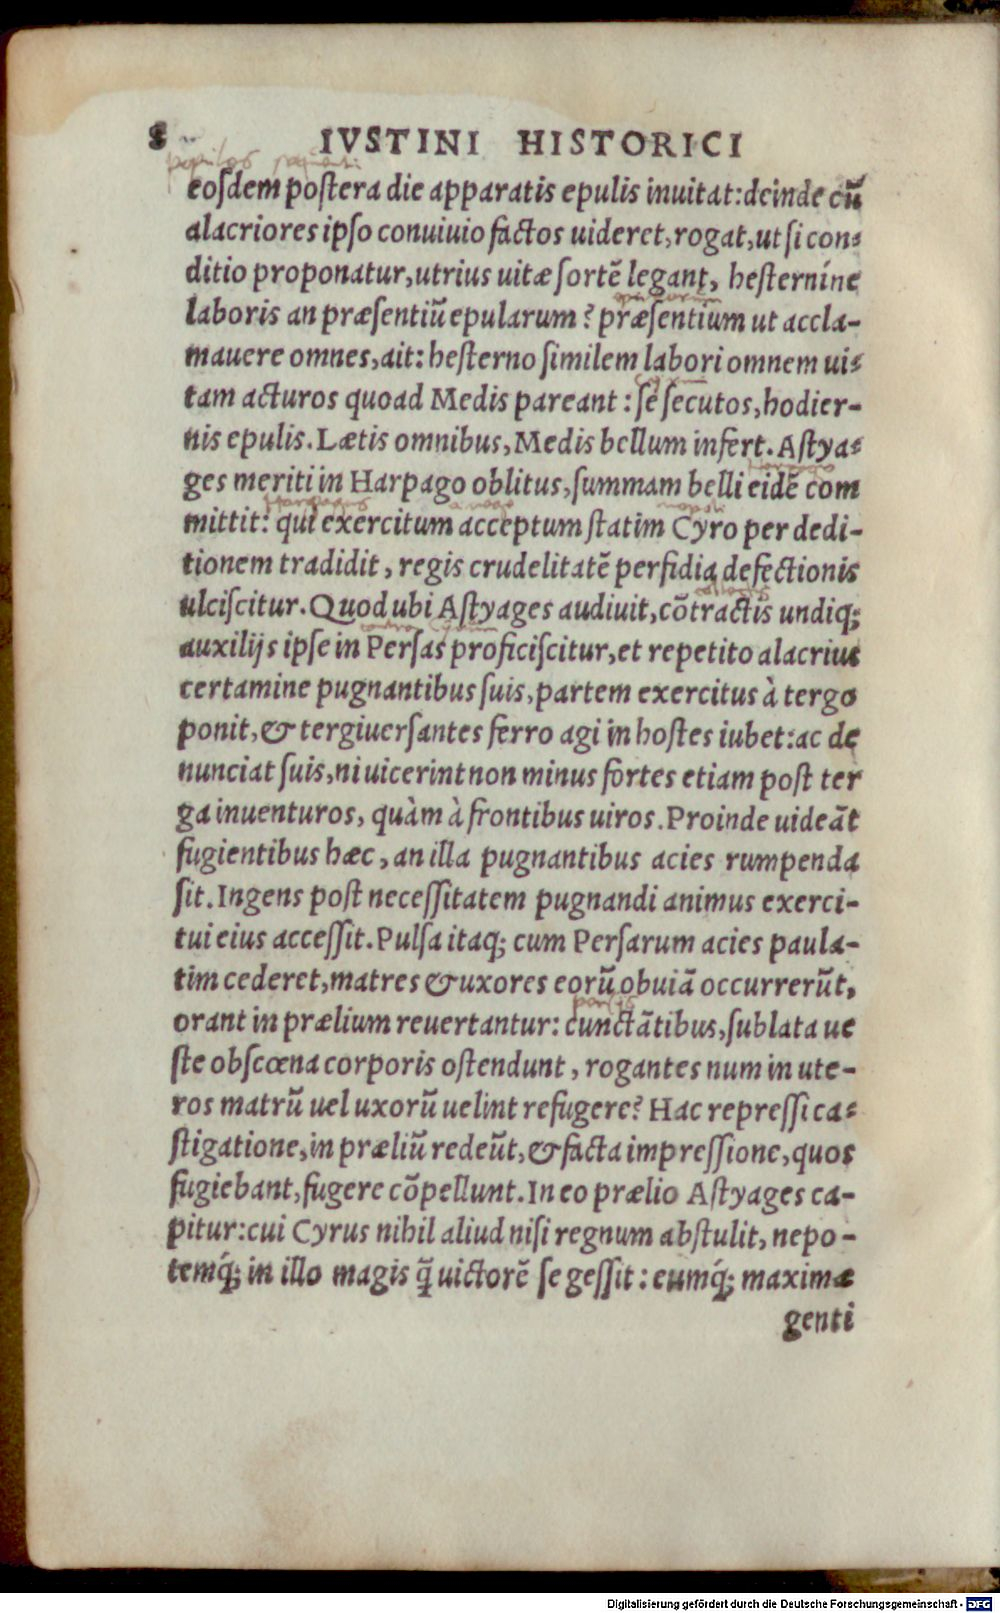 8 IVSTINI HISTORICI
populos
eosdem postera die apparatis epulis inuitat: deinde cū
alacriores ipso conuiuio factos uideret, rogat, ut si con-
ditio proponatur, utrius uitæ sortē legant, hesterníne
laboris an præsentiū epularum? præsentium ut accla-
mauere omnes, ait: hesterno similem labori omnem ui-
tam acturos quoad Medis pareant: se secutos, hodier-
nis epulis. Lætis omnibus, Medis bellum infert. Astya-
ges meriti in Harpago oblitus, summam belli eidē com
Harpagus
mittit: qui exercitum acceptum statim Cyro per dedi-
tionem tradidit, regis crudelitatē perfidia defectionis
ulciscitur. Quod ubi Astyages audiuit, cōtractis undiq;
auxilijs ipse in Persas proficiscitur, et repetito alacrius
certamine pugnantibus suis, partem exercitus à tergo
ponit, & tergiuersantes ferro agi in hostes iubet: ac de
nunciat suis, ni uicerint non minus fortes etiam post ter
ga inuenturos, quàm à frontibus uiros. Proinde uideāt
fugientibus hæc, an illa pugnantibus acies rumpenda
sit. Ingens post necessitatem pugnandi animus exerci-
tui eius accessit. Pulsa itaq; cum Persarum acies paula-
tim cederet, matres & uxores eorū obuiā occurrerūt,
orant in prælium reuertantur: cunctātibus, sublata ue
ste obscœna corporis ostendunt, rogantes num in ute-
ros matrū uel uxorū uelint refugere? Hac repressi ca-
stigatione, in præliū redeūt, & facta impressione, quos
fugiebant, fugere cōpellunt. In eo prælio Astyages ca-
pitur: cui Cyrus nihil aliud nisi regnum abstulit, nepo-
temq́; in illo magis q̄ uictorē se gessit: eumq́; maximæ
genti
Digitalisierung gefördert durch die Deutsche Forschungsgemeinschaft - DFG